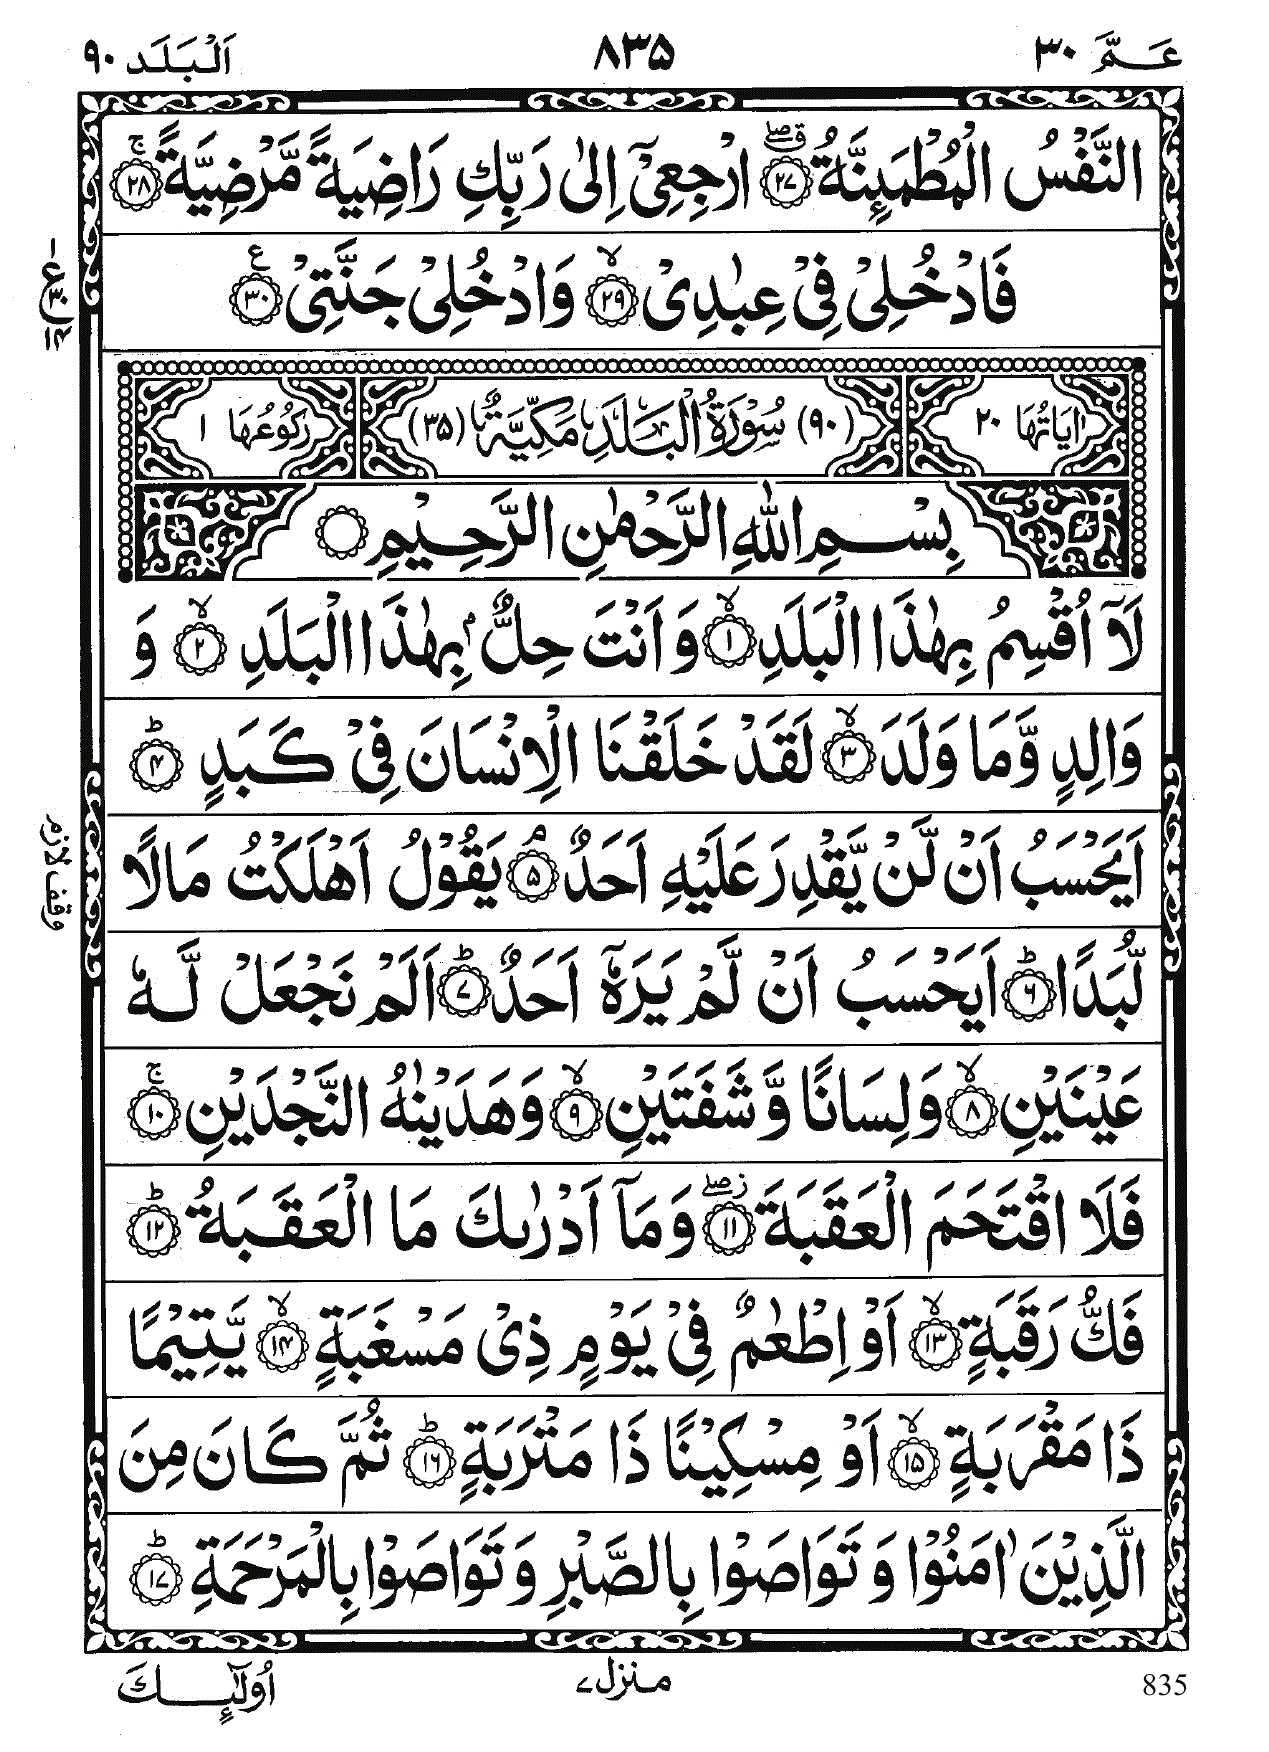 عَـمَّ ٣٠
٨٣٥
اَلْبَلَد ٩٠
النَّفْسُ الْمُطْمَىِٕنَّةُ ۟ۗۖ ٢٧ ارْجِعِىْۤ اِلٰى رَبِّكِ رَاضِيَةً مَّرْضِيَّةً ۚ ٢٨
فَادْخُلِىْ فِىْ عِبٰدِىْ ۙ ٢٩ وَادْخُلِىْ جَنَّتِىْ ع ٣٠
ع ٣ ١٤
اٰيَاتُهَا ٢٠
(٩٠) سُوْرَةُ الْبَلَدِ مَكِّيَّةٌ (٣٥)
رُكُوْعُهَا ١
بِسْمِ اللّٰهِ الرَّحْمٰنِ الرَّحِيْمِ
لَاۤ اُقْسِمُ بِهٰذَا الْبَلَدِ ۙ ١ وَ اَنْتَ حِلٌّۢ بِهٰذَا الْبَلَدِ ۙ ٢ وَ
وَالِدٍ وَّمَا وَلَدَ ۙ ٣ لَقَدْ خَلَقْنَا الْاِنْسَانَ فِىْ كَبَدٍ ؕ ٤
اَيَحْسَبُ اَنْ لَّنْ يَّقْدِرَ عَلَيْهِ اَحَدٌ ۘ ٥ يَقُوْلُ اَهْلَكْتُ مَالًا
وقف لازم
لُّبَدًا ؕ ٦ اَيَحْسَبُ اَنْ لَّمْ يَرَهٗۤ اَحَدٌ ؕ ٧ اَلَمْ نَجْعَلْ لَّهٗ
عَيْنَيْنِ ۙ ٨ وَلِسَانًا وَّشَفَتَيْنِ ۙ ٩ وَهَدَيْنٰهُ النَّجْدَيْنِ ۚ ١٠
فَلَا اقْتَحَمَ الْعَقَبَةَ ز ۖ ١١ وَمَاۤ اَدْرٰىكَ مَا الْعَقَبَةُ ؕ ١٢
فَكُّ رَقَبَةٍ ۙ ١٣ اَوْ اِطْعٰمٌ فِىْ يَوْمٍ ذِىْ مَسْغَبَةٍ ۙ ١٤ يَّتِيْمًا
ذَا مَقْرَبَةٍ ۙ ١٥ اَوْ مِسْكِيْنًا ذَا مَتْرَبَةٍ ؕ ١٦ ثُمَّ كَانَ مِنَ
الَّذِيْنَ اٰمَنُوْا وَ تَوَاصَوْا بِالصَّبْرِ وَ تَوَاصَوْا بِالْمَرْحَمَةِ ؕ ١٧
835
منزل ٧
اُولٰٓىِٕكَ